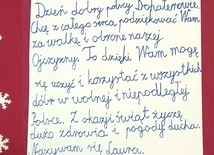 Dzień dobry panowy Bohaterowie.
Chcę z całego serca podziękować Wam
za walkę i obronę naszej
Ojczyzny. To dzięki Wam mogę
się uczyć i korzystać z wszystkich
dóbr w wolnej i niepodległej
Polsce. Z okazji świąt życzę
dużo zdrowia i pogody ducha.
Nazywam się Laura.